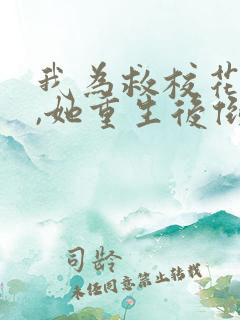 我为救校花
,她重生后
司龄
未经同意禁止转载